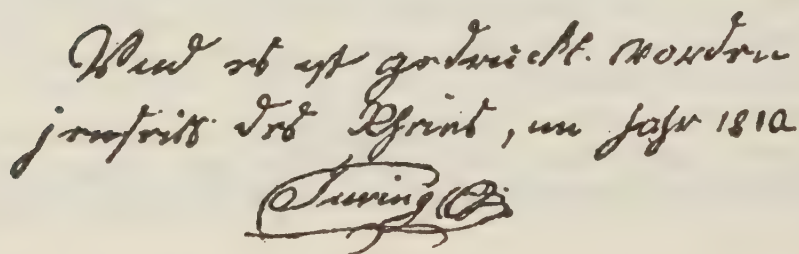 Und es ist gedruckt worden
jenseits des Rheins, im Jahr 1810